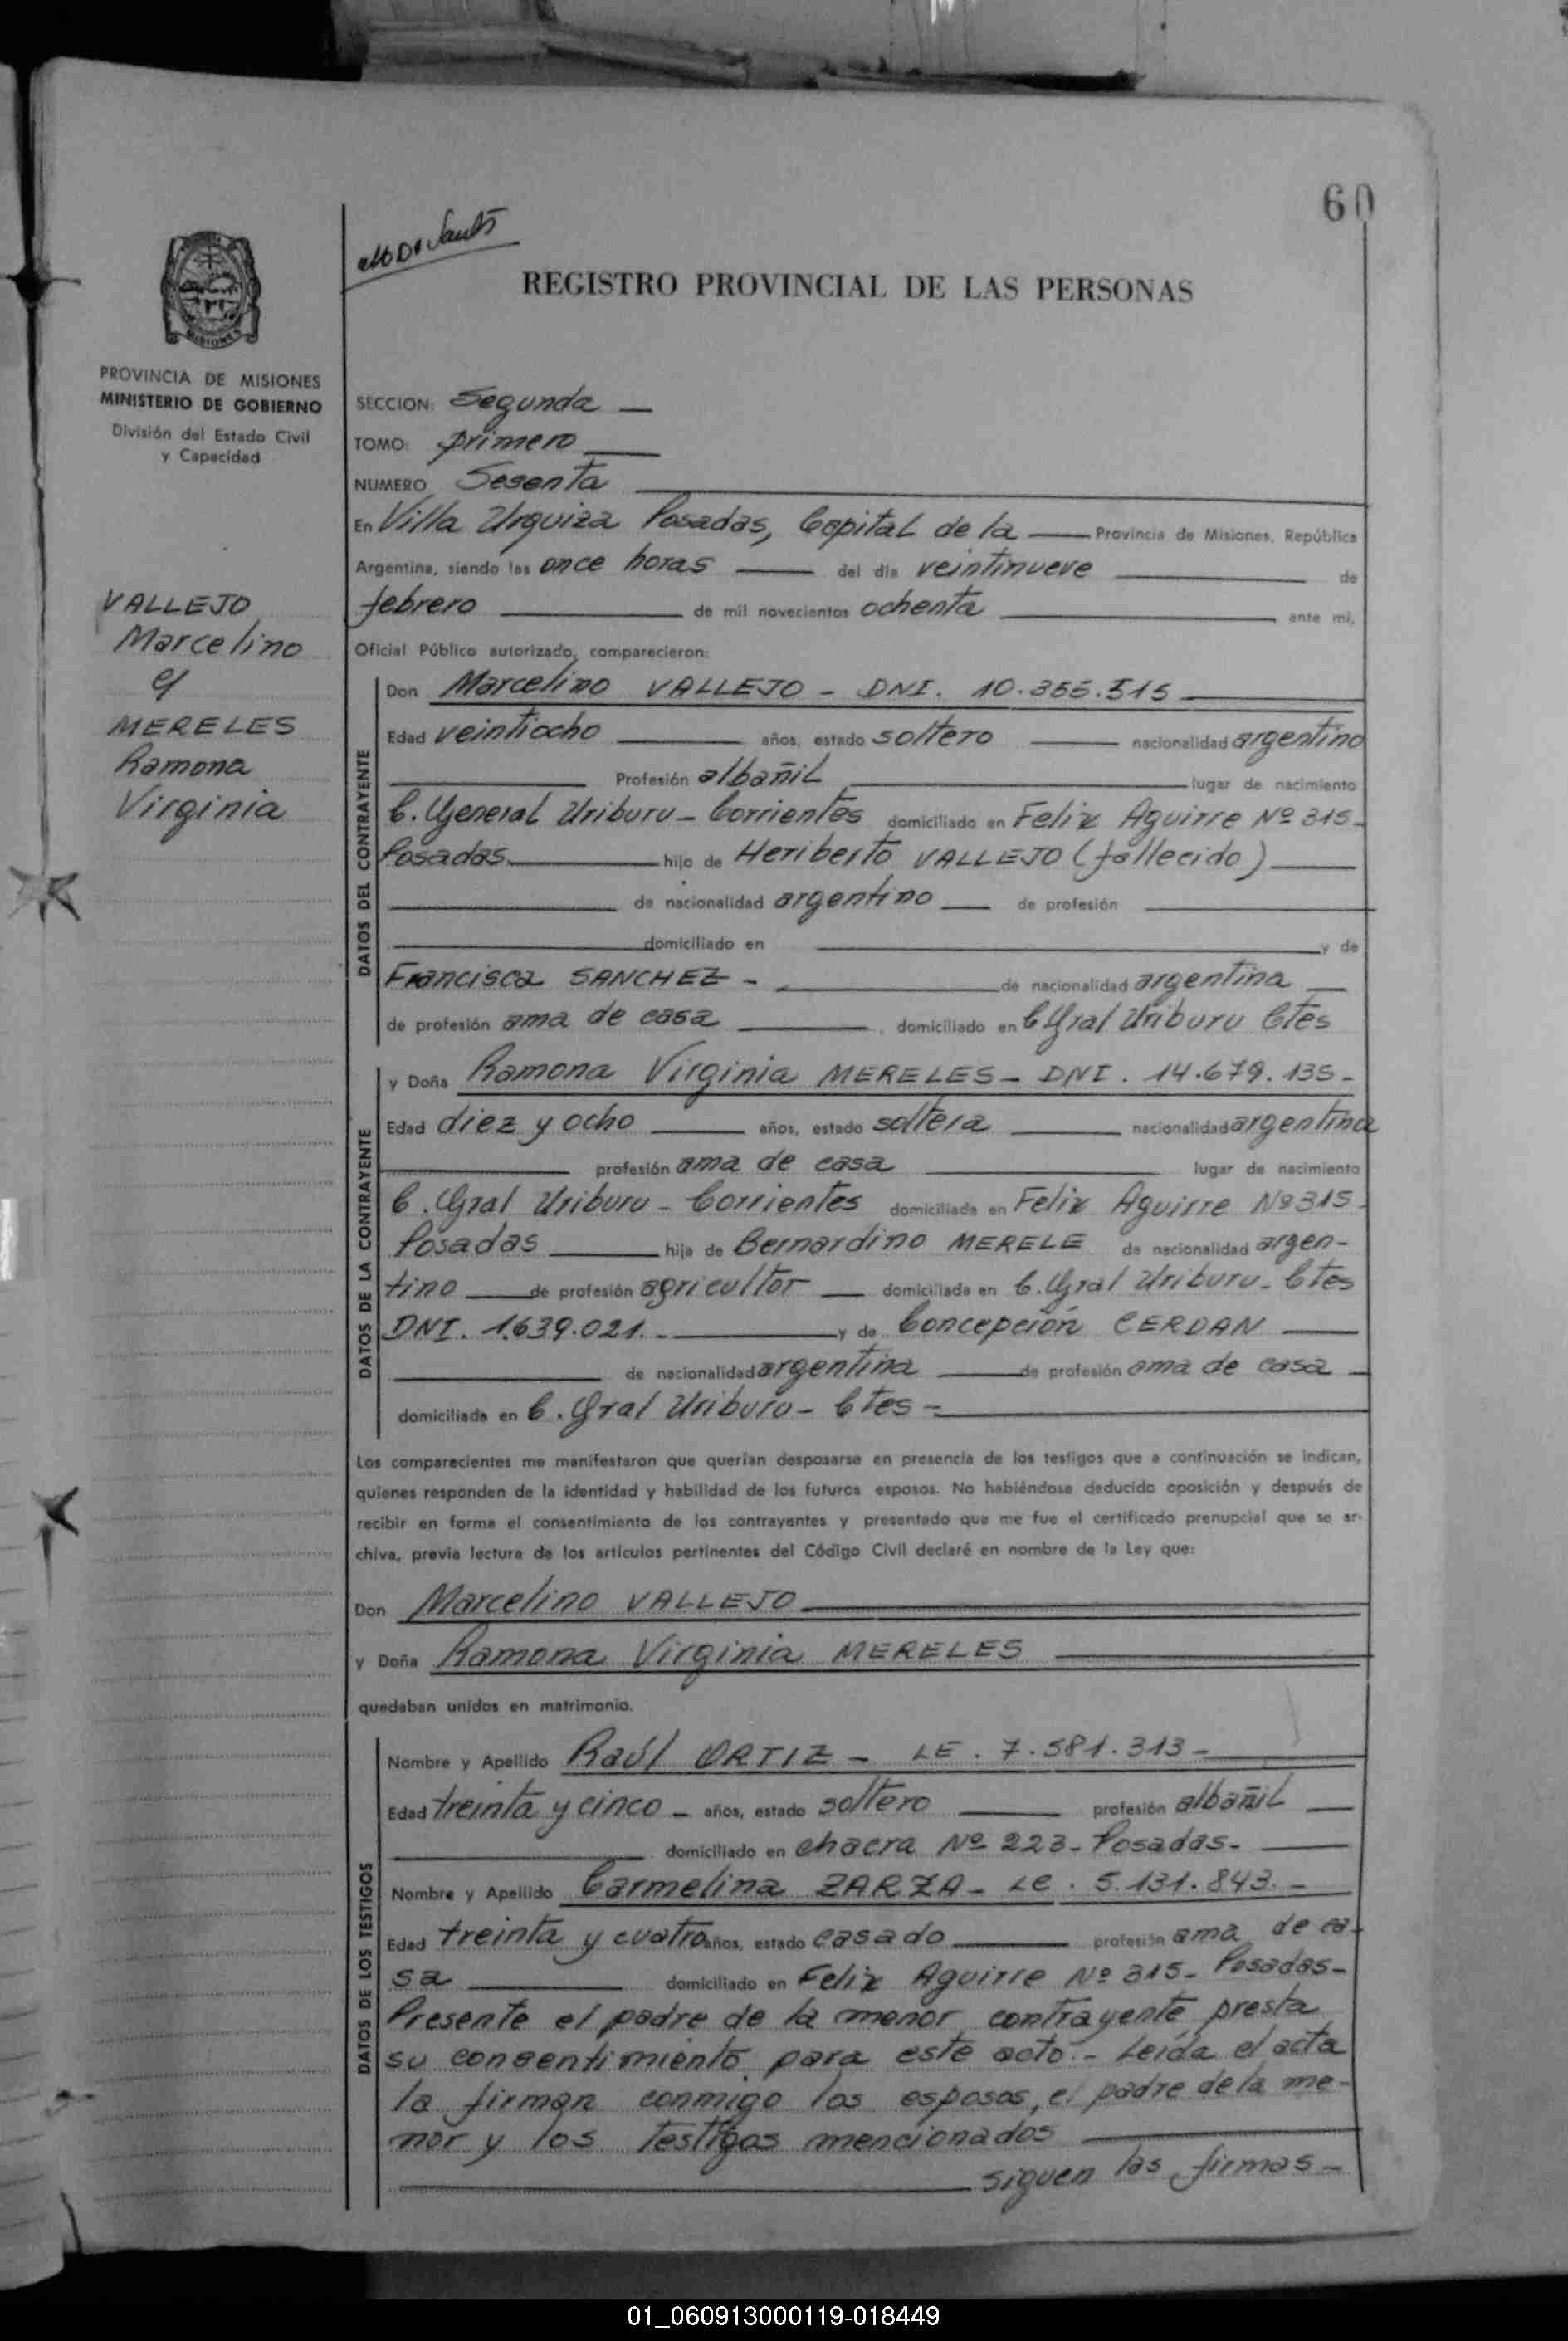 60
REGISTRO PROVINCIAL DE LAS PERSONAS
MISIONES
PROVINCIA DE MISIONES
MINISTERIO DE GOBIERNO
División del Estado Civil
y Capacidad
VALLEJO
Marcelino
c/
MERELES
Ramona
Virginia
SECCION: Segunda —
TOMO: primero
NUMERO Sesenta
En Villa Urquiza Posadas, Capital de la — Provincia de Misiones, República
Argentina, siendo las once horas — del día veintinueve — de
febrero — de mil novecientos ochenta — ante mi,
Oficial Público autorizado, comparecieron:
DATOS DEL CONTRAYENTE
Don Marcelino VALLEJO - DNI. 10.355.515
Edad veintiocho — años, estado soltero — nacionalidad argentino
— Profesión albañil — lugar de nacimiento
C. General Uriburu - Corrientes domiciliado en Felix Aguirre Nº 315-
Posadas — hijo de Heriberto VALLEJO (fallecido) —
— de nacionalidad argentino — de profesión —
— domiciliado en — y de
Francisca SANCHEZ - — de nacionalidad argentina —
de profesión ama de casa — , domiciliado en C Gral Uriburu Ctes
DATOS DE LA CONTRAYENTE
y Doña Ramona Virginia MERELES - DNI. 14.679.135-
Edad diez y ocho — años, estado soltera — nacionalidad argentina
— profesión ama de casa — lugar de nacimiento
C. Gral Uriburu - Corrientes domiciliada en Felix Aguirre Nº 315-
Posadas — hija de Bernardino MERELE de nacionalidad argen-
tino — de profesión agricultor — domiciliada en C. Gral Uriburu - Ctes
DNI. 1.639.021.- — y de Concepción CERDAN —
— de nacionalidad argentina — de profesión ama de casa —
domiciliada en C. Gral Uriburu - Ctes -
Los comparecientes me manifestaron que querían desposarse en presencia de los testigos que a continuación se indican,
quienes responden de la identidad y habilidad de los futuros esposos. No habiéndose deducido oposición y después de
recibir en forma el consentimiento de los contrayentes y presentado que me fue el certificado prenupcial que se ar-
chiva, previa lectura de los artículos pertinentes del Código Civil declaré en nombre de la Ley que:
Don Marcelino VALLEJO
y Doña Ramona Virginia MERELES
quedaban unidos en matrimonio.
DATOS DE LOS TESTIGOS
Nombre y Apellido Raúl ORTIZ - LE. 7.581.313-
Edad treinta y cinco - años, estado soltero — profesión albañil —
— domiciliado en chacra Nº 223- Posadas-
Nombre y Apellido Carmelina ZARZA - LC. 5.131.843.-
Edad treinta y cuatro años, estado casado — profesión ama de ca-
sa — domiciliado en Felix Aguirre Nº 315- Posadas-
Presente el padre de la menor contrayente presta
su consentimiento para este acto.- Leída el acta
la firman conmigo los esposos, el padre de la me-
nor y los testigos mencionados —
— siguen las firmas -
01_060913000119-018449